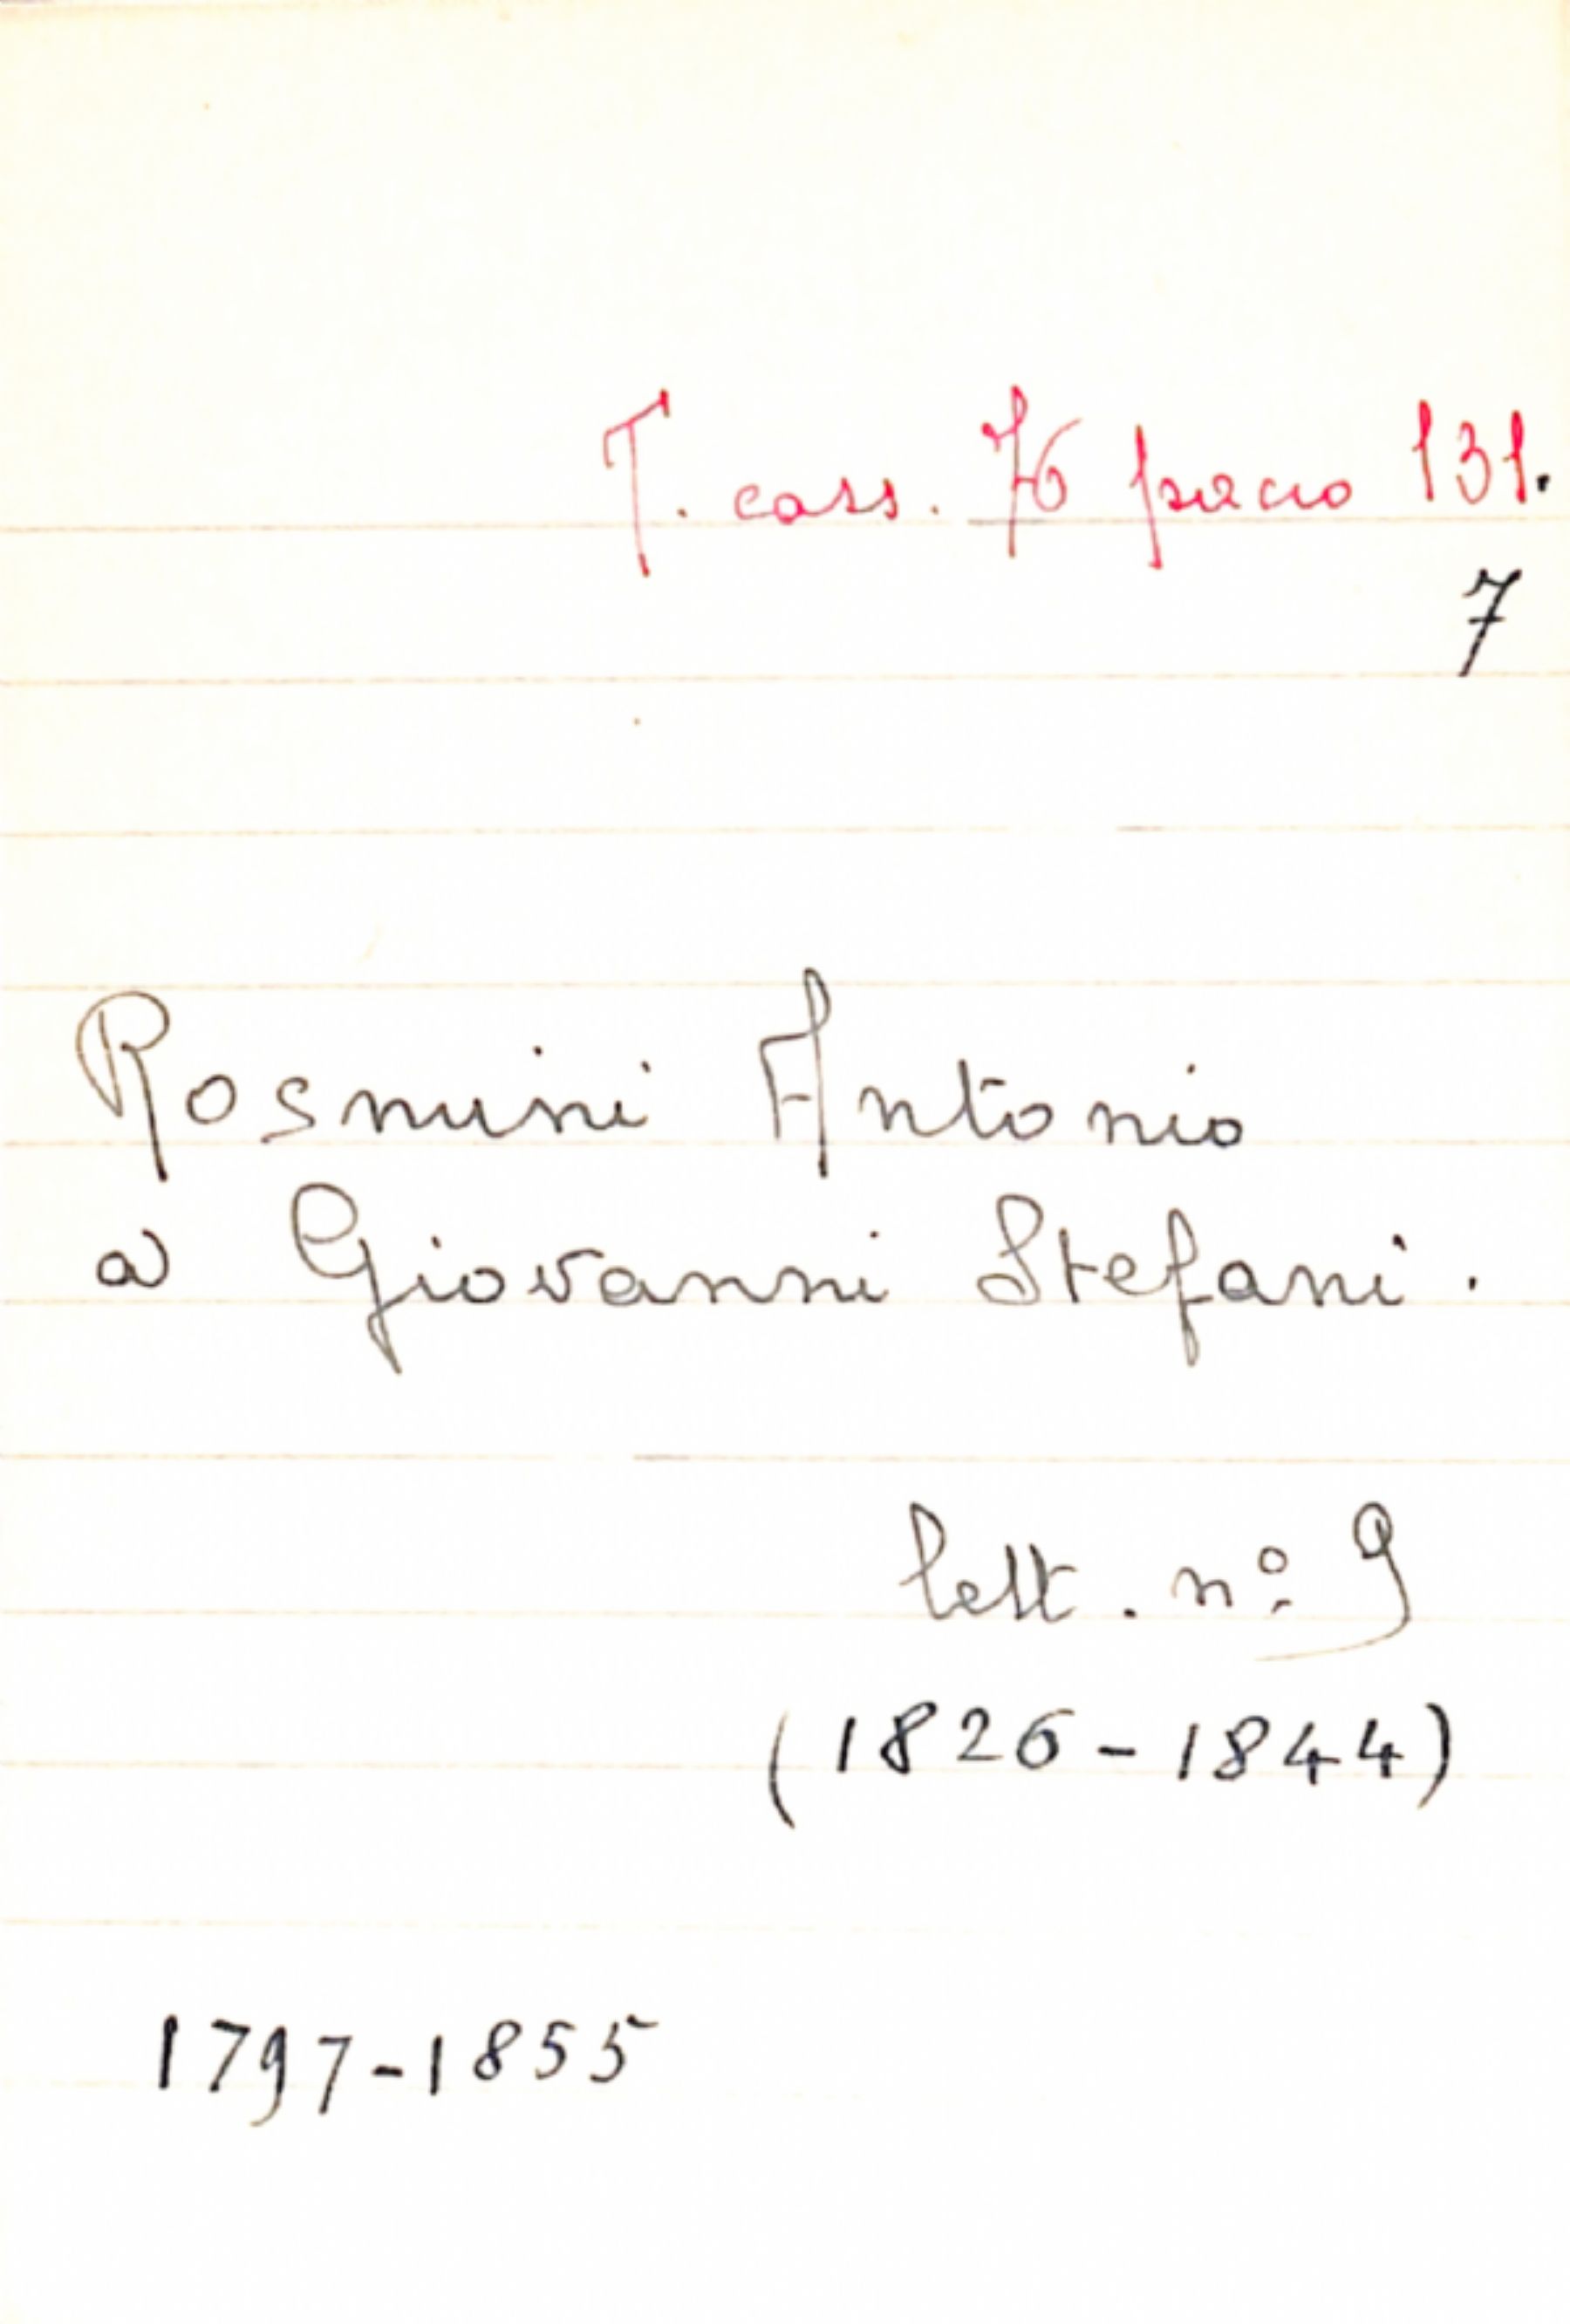 T. cass. 76 fascio 131.
7
Rosmini Antonio
a Giovanni Stefani.
lett. nº 9
(1826-1844)
1797-1855